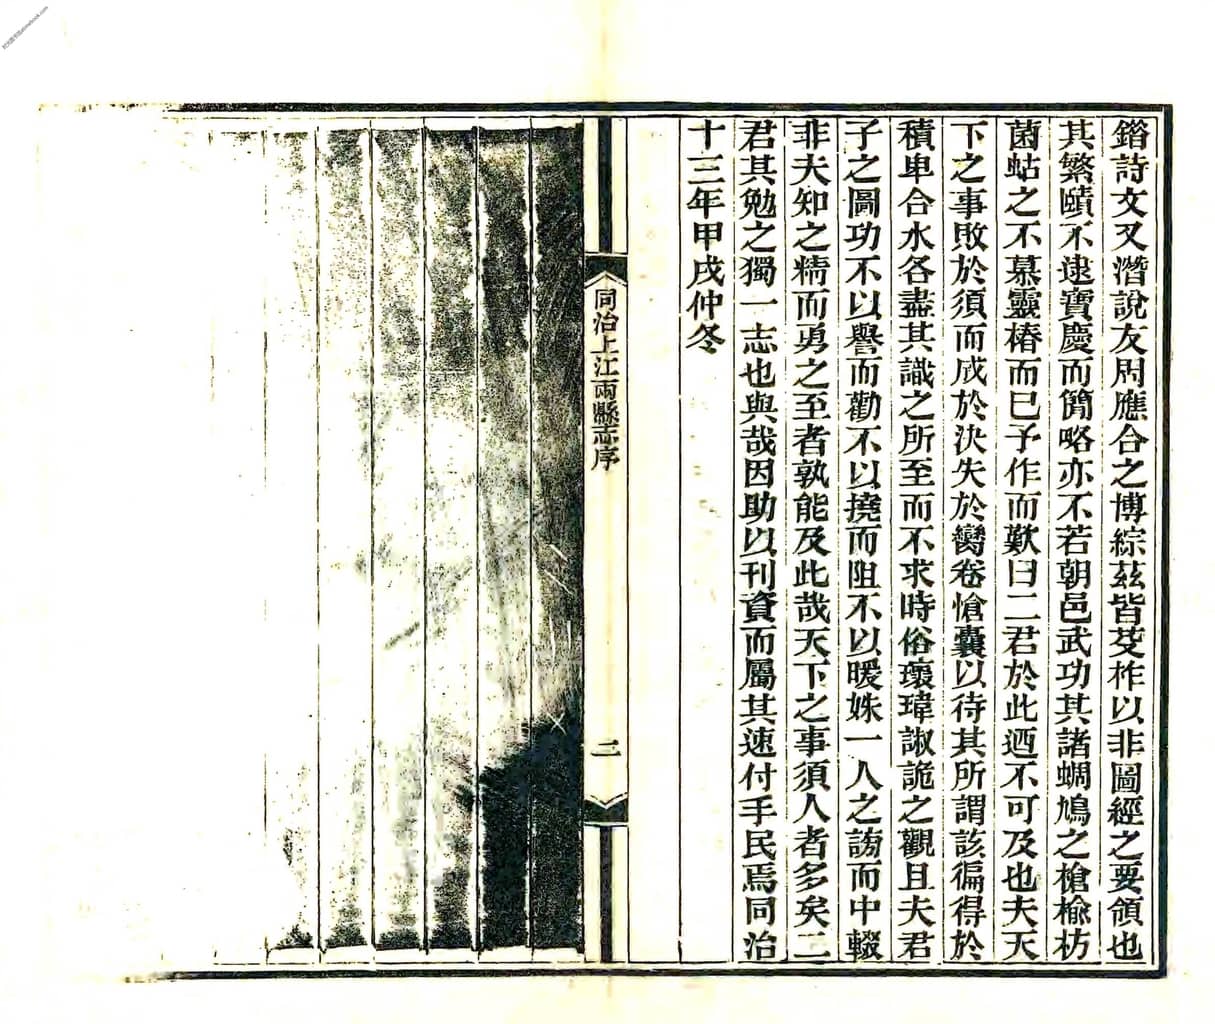 鎦詩文又潛說友周應合之博綜茲皆芟柞以非圖經之要領也
其繁賾不逮寶慶而簡略亦不若朝邑武功其諸蜩鳩之槍楡枋
菌蛄之不慕靈椿而已予作而歎曰二君於此迺不可及也夫天
下之事敗於須而成於決失於臠卷愴囊以待其所謂該徧得於
積卑合水各盡其識之所至而不求時俗瓌瑋諔詭之觀且夫君
子之圖功不以譽而勸不以撓而阻不以暖姝一人之謗而中輟
非夫知之精而勇之至者孰能及此哉天下之事須人者多矣二
君其勉之獨一志也與哉因助以刊資而屬其速付手民焉同治
十三年甲戌仲冬
同治上江兩縣志序
二